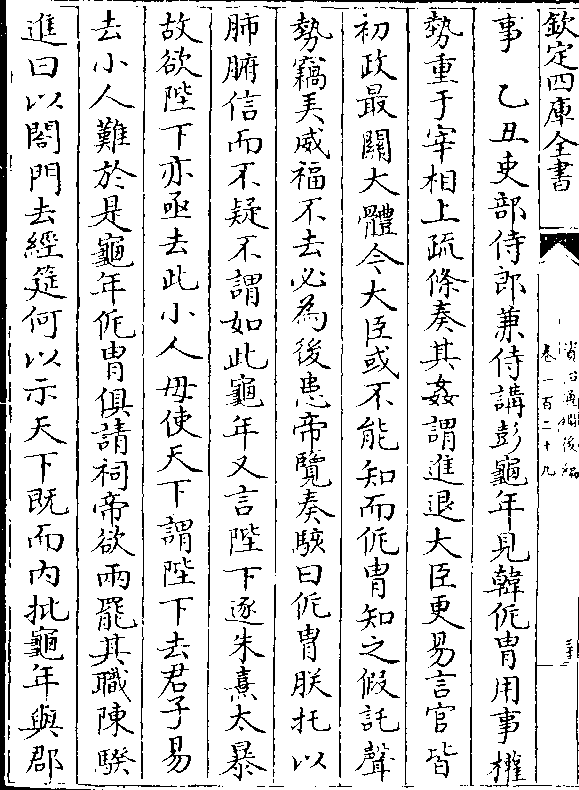 欽定四庫全書
卷一百二十九
事　乙丑吏部侍郎兼侍講彭龜年見韓侂胄用事權
勢重于宰相上疏條奏其姦謂進退大臣更易言官皆
初政最關大體今大臣或不能知而侂胄知之假託聲
勢竊弄威福不去必為後患帝覽奏駭曰侂胄朕托以
肺腑信而不疑不謂如此龜年又言陛下逐朱熹太暴
故欲陛下亦亟去此小人毋使天下謂陛下去君子易
去小人難於是龜年侂胄俱請祠帝欲兩罷其職陳騤
進曰以閤門去經筵何以示天下既而内批龜年與郡